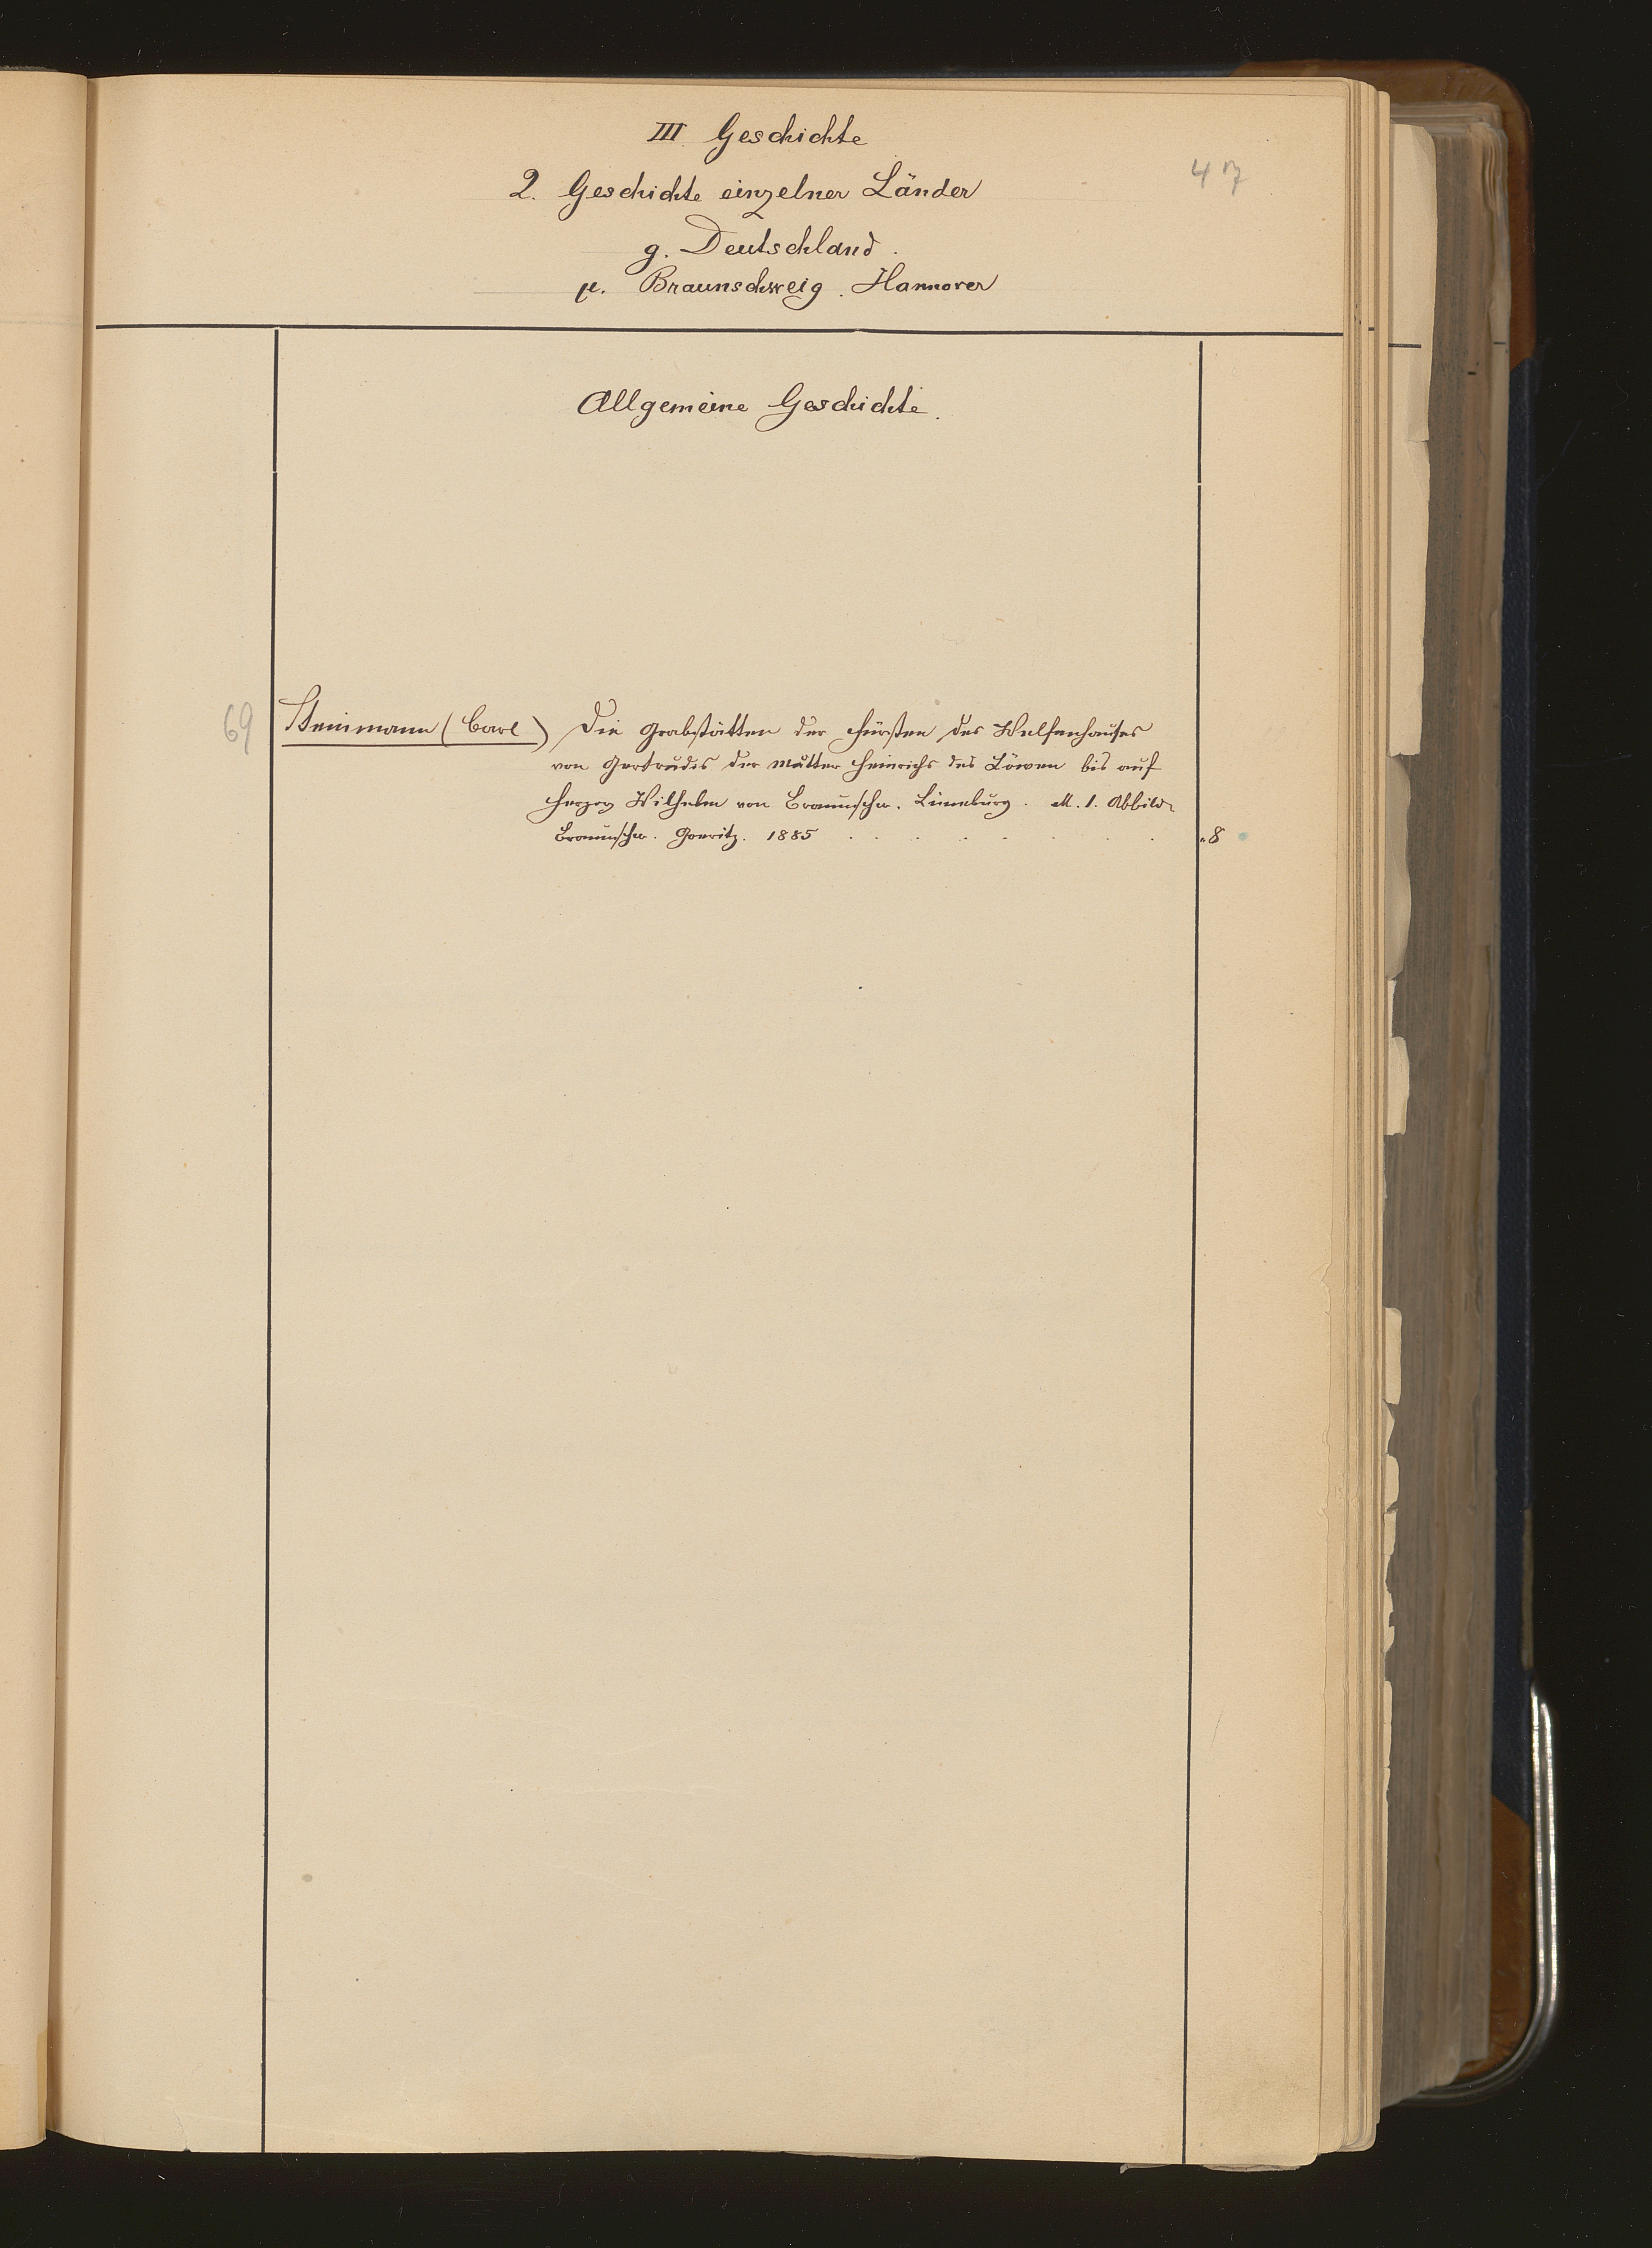 III. Geschichte
47
2. Geschichte einzelner Länder
g. Deutschland.
μ. Braunschweig. Hannover
Allgemeine Geschichte.
69
Steinmann (Carl) Die Grabstätten der Fürsten des Welfenhauses
von Gertrudis der Mutter Heinrichs des Löwen bis auf
Herzog Wilhelm von Braunschw. Lüneburg. M. 1. Abbild.
Braunschw. Goeritz. 1885 . . . . . . . .
8